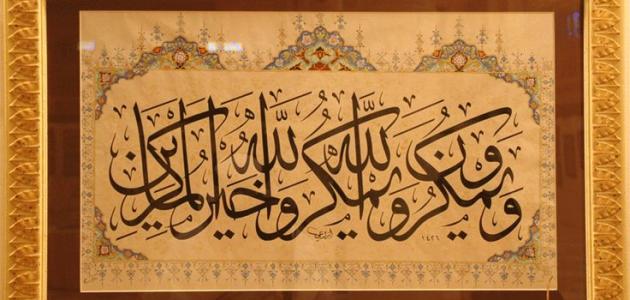 ويمكرون ويمكر الله والله خير المكرين
١٤٢٦